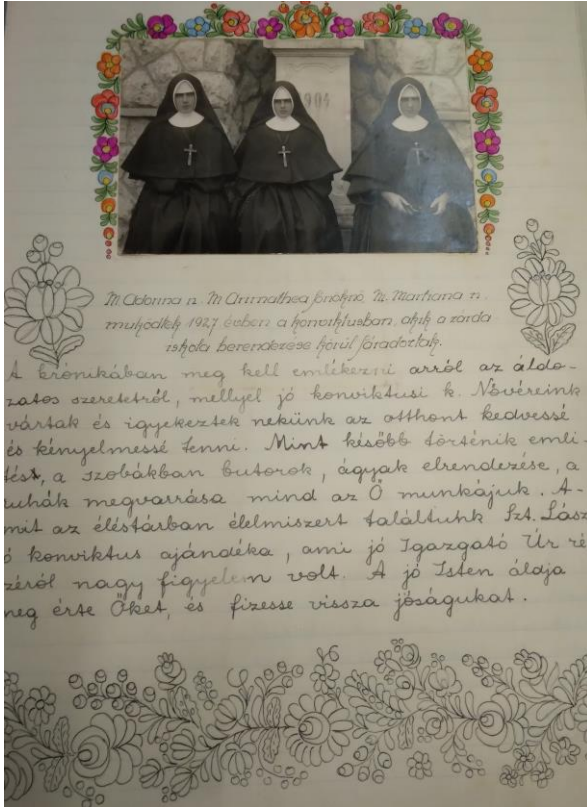 1904
M. Adorina n. M. Arimathea főnöknő, M. Martiana n.
működtek 1927 évben a konviktusban, akik a zárda
iskola berendezése körül fáradoztak.
A krónikában meg kell emlékezni arról az áldo-
zatos szeretetről, mellyel jó konviktusi k. Nővéreink
vártak és igyekeztek nekünk az otthont kedvessé
és kényelmessé tenni. Mint később történik emlí-
tés, a szobákban butorok, ágyak elrendezése, a
ruhák megvarrása mind az Ő munkájuk. A-
mit az éléstárban élelmiszert találtunk Szt. Lász
ó konviktus ajándéka, ami jó Igazgató Úr ré
zéről nagy figyelem volt. A jó Isten áldja
meg érte Őket, és fizesse vissza jóságukat.